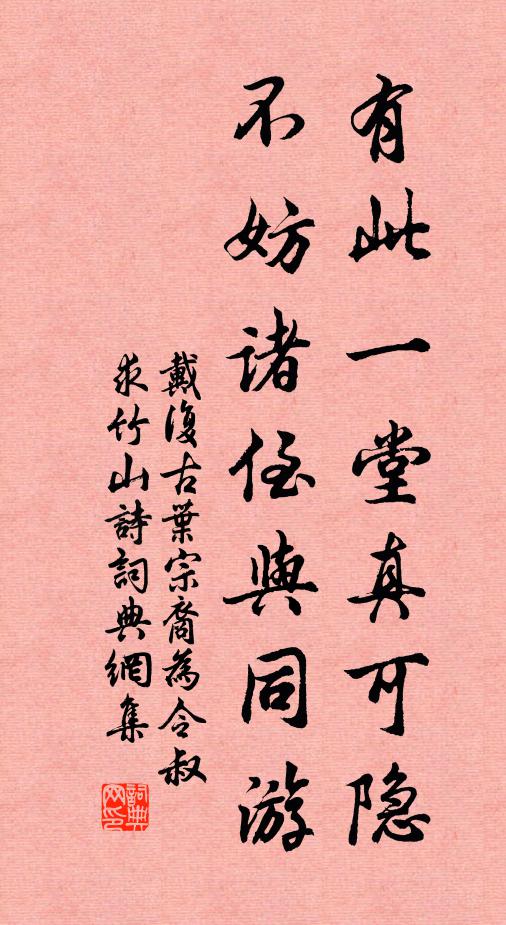 有此一堂真可隐
不妨诸侄與同游
戴復古葉宗裔為令叔
求竹山詩詞典網集
詞典
网印